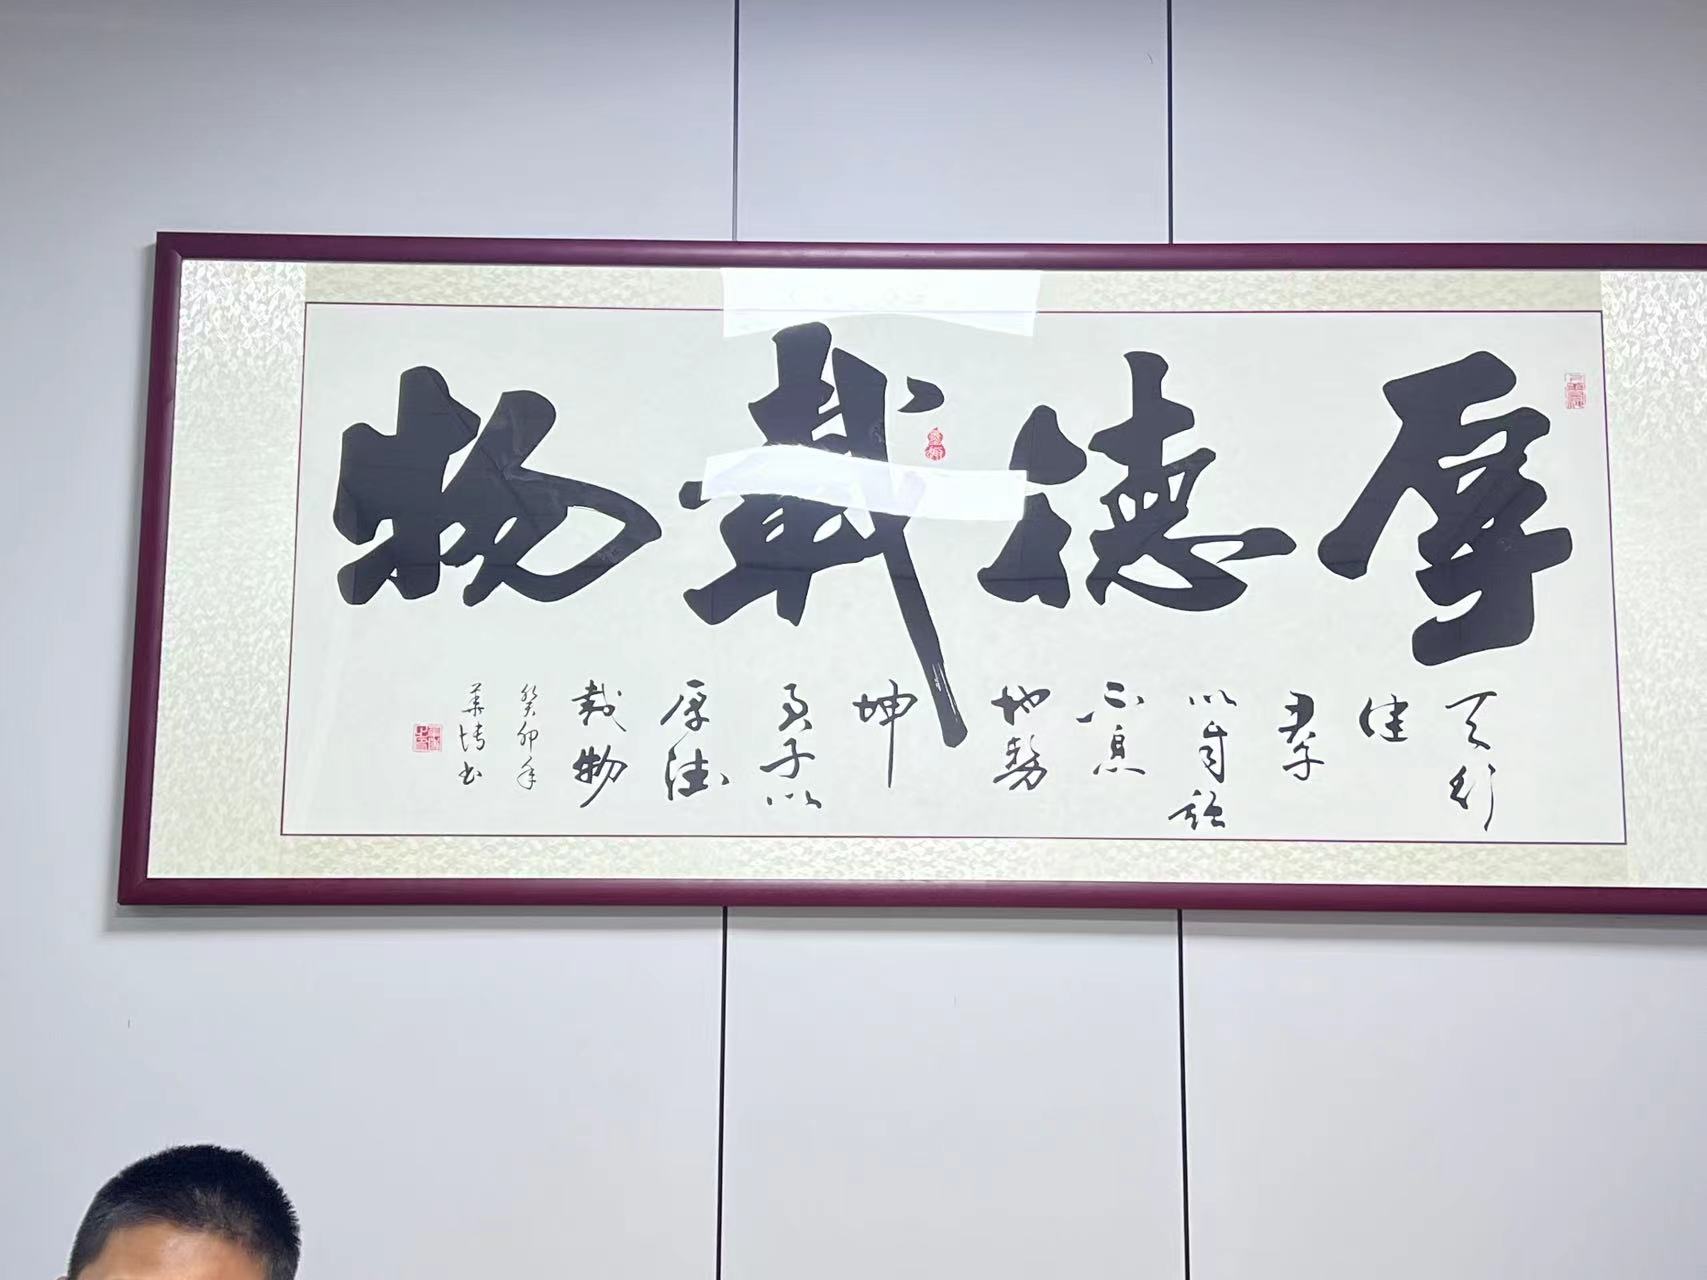 厚德载物
天行
健
君子
以自强
不息
地势
坤
君子以
厚德
载物
癸卯年